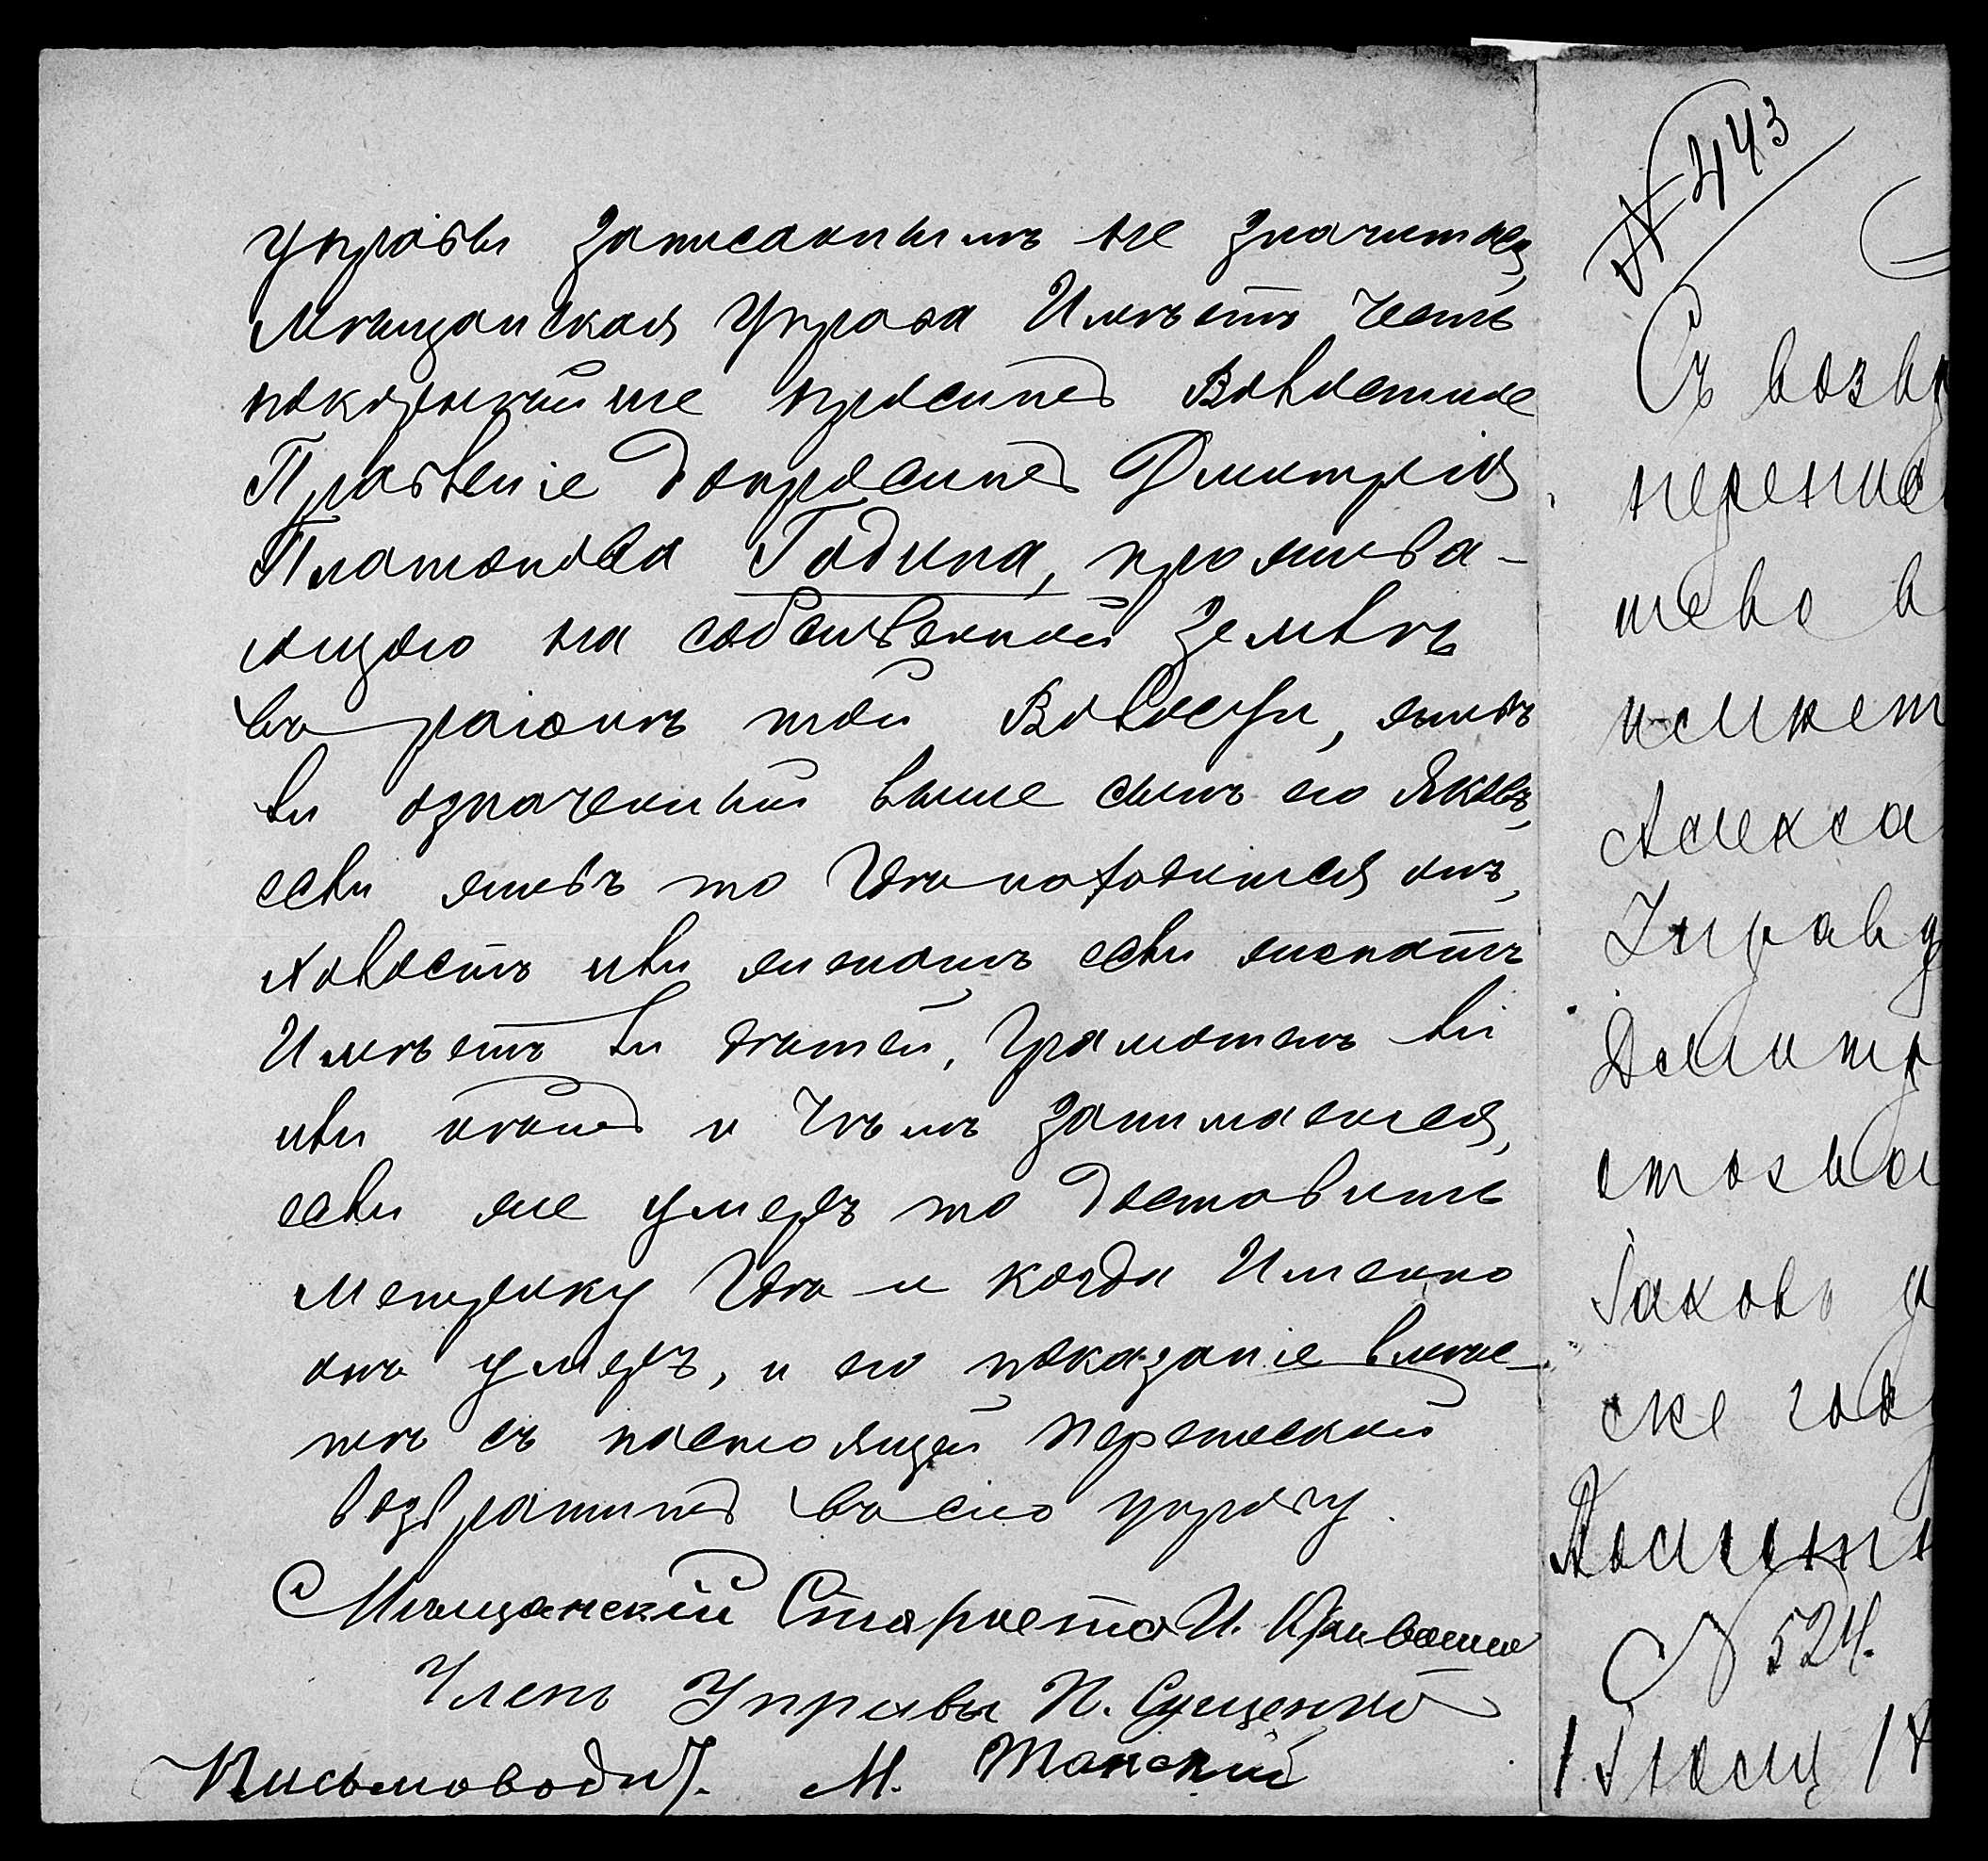 управы записаннымъ не значится,
Мѣщанская Управа Имѣетъ Честь
покорнѣйше проситъ Волостное
Правленіе допросить Дмитрія
Платонова Година, прожива-
ющаго на собственной Землѣ
въ раіонѣ той Волости, живъ
ли означенный выше сынъ его Яковъ,
если живъ то Где находится онъ,
холостъ или женатъ если женатъ
Имѣетъ ли дѣтей, Грамотенъ ли
или нѣтъ и Чѣмъ занимается,
если же умеръ то доставить
Метрику Где и когда Именно
онъ умеръ, и его показаніе вмѣс-
тѣ съ настоящей перепиской
возвратить въ сію управу.
Мѣщанскій Староста И.
Членъ Управы П. Сущенко
Письмовод. М. Манский
№ 443
Съ возвр
перепис
ство в
Алекса
Управ
Дмитр
отозвал
Яковъ у
ске год
№ 524.
1 Іюля 18